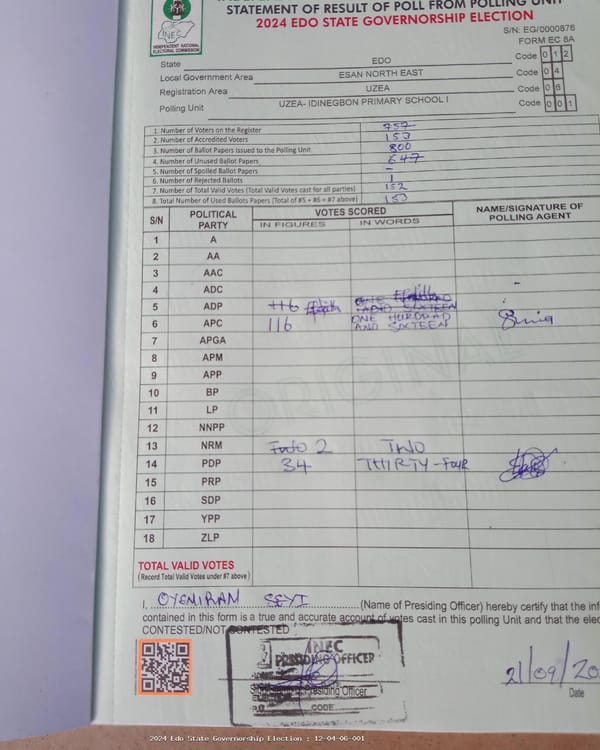 STATEMENT OF RESULT OF POLL FROM POLLING UNIT
2024 EDO STATE GOVERNORSHIP ELECTION
INEC
INDEPENDENT NATIONAL ELECTORAL COMMISSION
S/N: EG/0000876
FORM EC 8A
State EDO Code 0 1 2
Local Government Area ESAN NORTH EAST Code 0 4
Registration Area UZEA Code 0 6
Polling Unit UZEA- IDINEGBON PRIMARY SCHOOL I Code 0 0 1
1. Number of Voters on the Register 757
2. Number of Accredited Voters 153
3. Number of Ballot Papers Issued to the Polling Unit 800
4. Number of Unused Ballot Papers 647
5. Number of Spoiled Ballot Papers -
6. Number of Rejected Ballots 1
7. Number of Total Valid Votes (Total Valid Votes cast for all parties) 152
8. Total Number of Used Ballots Papers (Total of #5 + #6 + #7 above) 153
S/N POLITICAL PARTY VOTES SCORED NAME/SIGNATURE OF POLLING AGENT
IN FIGURES IN WORDS
1 A
2 AA
3 AAC
4 ADC -
5 ADP 116 AND SIXTEEN
6 APC 116 ONE HUNDRED AND SIXTEEN
7 APGA
8 APM
9 APP
10 BP
11 LP
12 NNPP
13 NRM 2 TWO
14 PDP 34 THIRTY-FOUR
15 PRP
16 SDP
17 YPP
18 ZLP
TOTAL VALID VOTES
(Record Total Valid Votes under #7 above)
ORIGINAL
I, OYENIRAN SEYI (Name of Presiding Officer) hereby certify that the inf
contained in this form is a true and accurate account of votes cast in this polling Unit and that the elec
CONTESTED/NOT CONTESTED
INEC
PRESIDING OFFICER
Presiding Officer
CODE
21/09/20
Date
2024 Edo State Governorship Election : 12-04-06-001